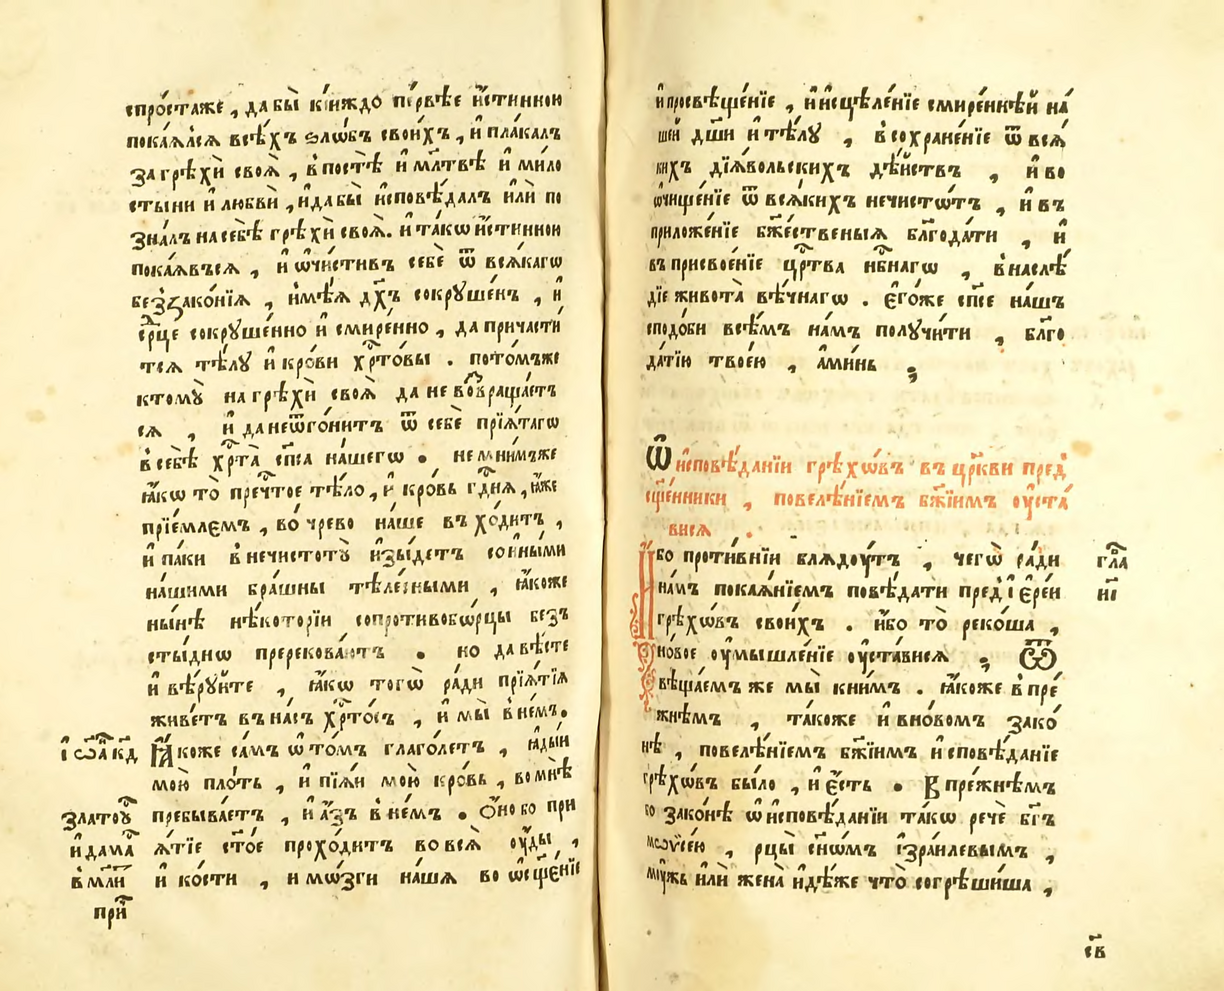 спро́стаже , да бы̀ кі́иждо пе́рвѣе и҆́стинною
пока́ялсѧ всѣ́хъ ѕлѡ́бъ свои́хъ , и҆ пла́калъ
за грѣхѝ своѧ̀ , в̾ постѣ̀ и҆ мл҃твѣ и҆ ми́ло
стыни и҆ любвѝ , и҆ да бы̀ и҆сповѣ́далъ и҆лѝ по
зна́лъ на себѣ̀ грѣхѝ своѧ̀. и҆ та́кѡ и҆́стинною
пока́ѧвъсѧ , и҆ ѡ҆чи́стивъ себѐ ѿ всѧ́кагѡ
без̾зако́нїѧ , и҆мѣ́ѧ дх҃ъ сокрꙋше́нъ , и҆
се́рце сокрꙋше́нно и҆ смире́нно , да причасти́
тсѧ тѣ́лꙋ и҆ кро́ви хрⷭ҇то́вы . пото́мъже
ктомꙋ̀ на грѣхѝ своѧ̀ да не во̂враща́етъ
сѧ , и҆ да не ѿго́нитъ ѿ себѐ прїѧ́тагѡ
в̾ себѣ̀ хрⷭ҇та̀ сп҃са на́шегѡ . не мни́мъже
ꙗ҆́кѡ то̀ пречⷭ҇тое тѣ́ло , и҆ кро́вь гдⷭ҇нѧ , ꙗ҆́же
прїе́млаемъ , во чре́во на́ше въ хо́дитъ ,
и҆ па́ки в̾ нечистотꙋ̀ и҆зы́детъ со и҆ны́ми
на́шими бра́шны тѣле́сными , ꙗ҆́коже
ны́нѣ нѣ́которїи сопротивобо́рцы без̾
сты́днѡ пререкова́ютъ . но да вѣ́сте
и҆ вѣ́рꙋйте , ꙗ҆́кѡ тогѡ̀ ра́ди прїѧ́тїѧ
живе́тъ въ на́съ хрⷭ҇то́съ , и҆ мы̀ в̾ не́мъ.
і҆ѡⷩ҇а кд Ꙗ҆́коже са́мъ ѡ҆ то́мъ глаго́летъ , ꙗ҆ды́й
мою̀ пло́ть , и҆ пїѧ́й мою̀ кро́вь , во мнѣ̀
златоꙋⷭ҇ пребыва́етъ , и҆ а҆́зъ в̾ не́мъ . Ѻ҆́но бо при
и҆ дамаⷭ҇ ѧ́тїе ст҃о́е прохо́дитъ во всѧ̀ ᲂу҆́ды ,
в̾ мл҃и и҆ ко́сти , и҆ мѡ́зги на́шѧ во ѡ҆сщ҃е́нїе
приⷱ҇
и҆ просвѣще́нїе , и҆ и҆сцѣле́нїе смире́ннѣй на́
шей дш҃и и҆ тѣ́лꙋ , в̾ сохране́нїе ѿ всѧ́
кихъ дїѧ́вольскихъ дѣ́йствъ , и҆ во
ѡ҆чище́нїе ѿ всѧ́кихъ нечистѡ́тъ , и҆ въ
приложе́нїе бж҃е́ственыѧ бл҃года́ти , и҆
въ присвое́нїе црⷭ҇тва нбⷭ҇нагѡ , в̾ наслѣ́
дїе живота̀ вѣ́чнагѡ . є҆го́же сп҃се на́шъ
сподо́би всѣ́мъ на́мъ полꙋчи́ти , бл҃го
да́тїю твое́ю , а҆ми́нь ;
Ѿ и҆сповѣ́данїи грѣхѡ́въ въ цр҃кви пред̾
сщ҃е́нники , повелѣ́нїемъ бж҃їимъ ᲂу҆ста́
висѧ .
И́бо проти́внїи блѧдоꙋ́тъ , чегѡ̀ ра́ди глаⷡ҇
на́мъ покаѧ́нїемъ повѣ́дати пред̾ і҆ере́и н҃і
грѣхѡ́въ свои́хъ . и҆́бо то̀ реко́ша ,
но́вое ᲂу҆мышле́нїе ᲂу҆ста́висѧ ; Ѿ
вѣща́емъ же мы̀ к̾ ни́мъ . ꙗ҆́коже в̾ пре́
жнѣмъ , та́коже и҆ в̾ но́вомъ зако́
нѣ , повелѣ́нїемъ бж҃їимъ и҆сповѣ́данїе
грѣхѡ́въ бы́ло , и҆ є҆́сть . В̾ пре́жнѣмъ
бо зако́нѣ ѡ҆ и҆сповѣ́данїи та́кѡ речѐ бг҃ъ
мѡѷсе́ю , рцы̀ сн҃ѡ́мъ і҆зра́илевымъ ,
мꙋ́жь и҆лѝ жена̀ и҆дѣ́же что̀ согрѣши́ша ,
с҃в